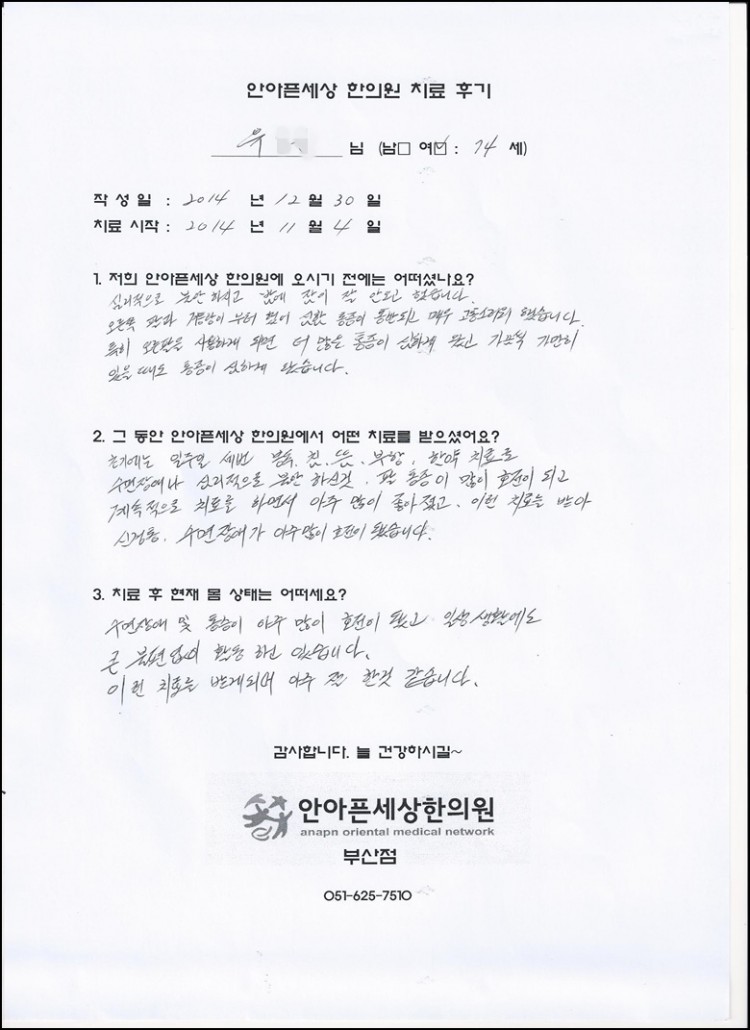 안아픈세상 한의원 치료 후기
유 님 (남□ 여☑ : 74 세)
작성일 : 2014 년 12 월 30 일
치료 시작 : 2014 년 11 월 4 일
1. 저희 안아픈세상 한의원에 오시기 전에는 어떠셨나요?
심리적으로 불안하시고 밤에 잠이 잘 안오고 했습니다.
오른쪽 팔과 통증이 동반되고 매우
특히 오른팔을 사용하게 되면 더 많은 통증이 심하게 왔고 가만히
있을때도 통증이 심하게 왔습니다.
2. 그 동안 안아픈세상 한의원에서 어떤 치료를 받으셨어요?
초기에는 일주일 세번 침, 뜸, 부항, 한약 치료로
수면장애나 심리적으로 불안하신것, 팔 통증이 많이 호전이 되고
계속적으로 치료를 하면서 아주 많이 좋아졌고, 이런 치료를 받아
신경통, 수면장애가 아주많이 호전이 됐습니다.
3. 치료 후 현재 몸 상태는 어떠세요?
수면장애 및 통증이 아주 많이 호전이 됐고 일상생활에도
큰 불편없이 활동 하고 있습니다.
이런 치료를 받게되어 아주 잘 한것 같습니다.
감사합니다. 늘 건강하시길~
안아픈세상한의원
anapn oriental medical network
부산점
051-625-7510